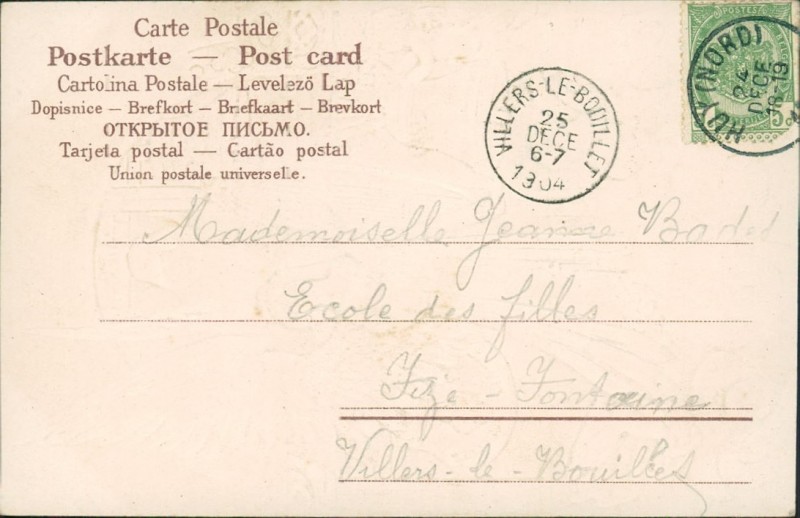 Carte Postale
Postkarte — Post card
Cartolina Postale — Levelező Lap
Dopisnice — Brefkort — Briefkaart — Brevkort
ОТКРЫТОЕ ПИСЬМО.
Tarjeta postal — Cartão postal
Union postale universelle.
VILLERS-LE-BOUILLET
25
DECE
6-7
1904
POSTES
5
HUY (NORD)
24
DECE
18-19
Mademoiselle Jeanne
Ecole des filles
Fize - Fontaine
Villers - le - Bouillet